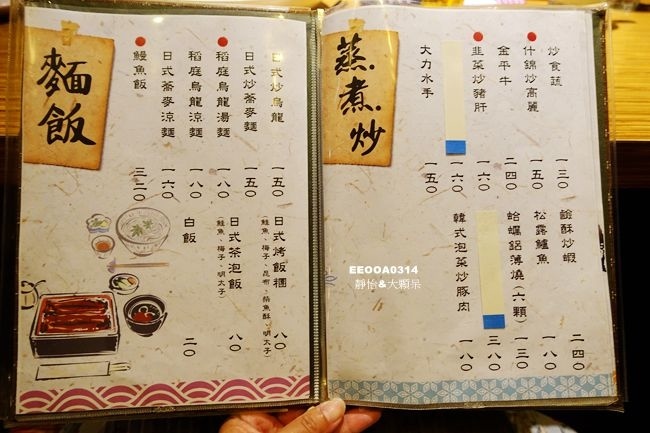 麵飯
鰻魚飯 三二〇
日式蕎麥涼麵 一六〇
稻庭烏龍涼麵 一八〇
稻庭烏龍湯麵 一八〇
日式炒蕎麥麵 一五〇
日式炒烏龍 一五〇
白飯 二〇
日式茶泡飯 八〇
(鮭魚、梅子、明太子)
日式烤飯糰 八〇
(鮭魚、梅子、昆布、柴魚酥、明太子)
蒸.煮.炒
大力水手 一五〇
韭菜炒豬肝 一六〇
金平牛 二四〇
什錦炒高麗 一五〇
炒食蔬 一三〇
韓式泡菜炒豚肉 一八〇
三八〇
蛤蠣鋁薄燒(六顆) 一三〇
松露鱸魚 一八〇
鹽酥炒蝦 二四〇
EEOOA0314
靜怡&大顆呆